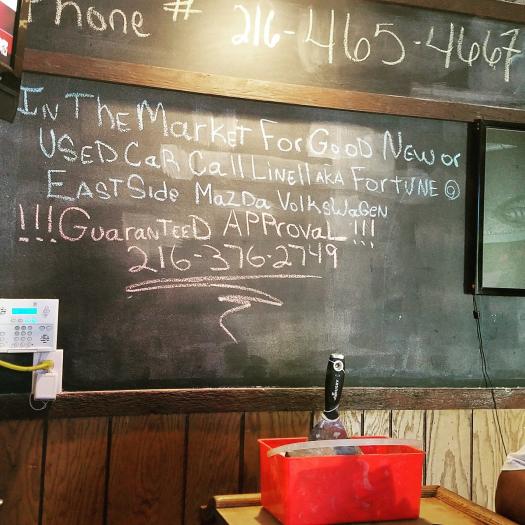 Phone # 216-465-4667
In The Market For Good New or
Used Car Call Linell AKA Fortune @
East Side Mazda Volkswagen
!!!Guaranteed Approval!!!
216-376-2749